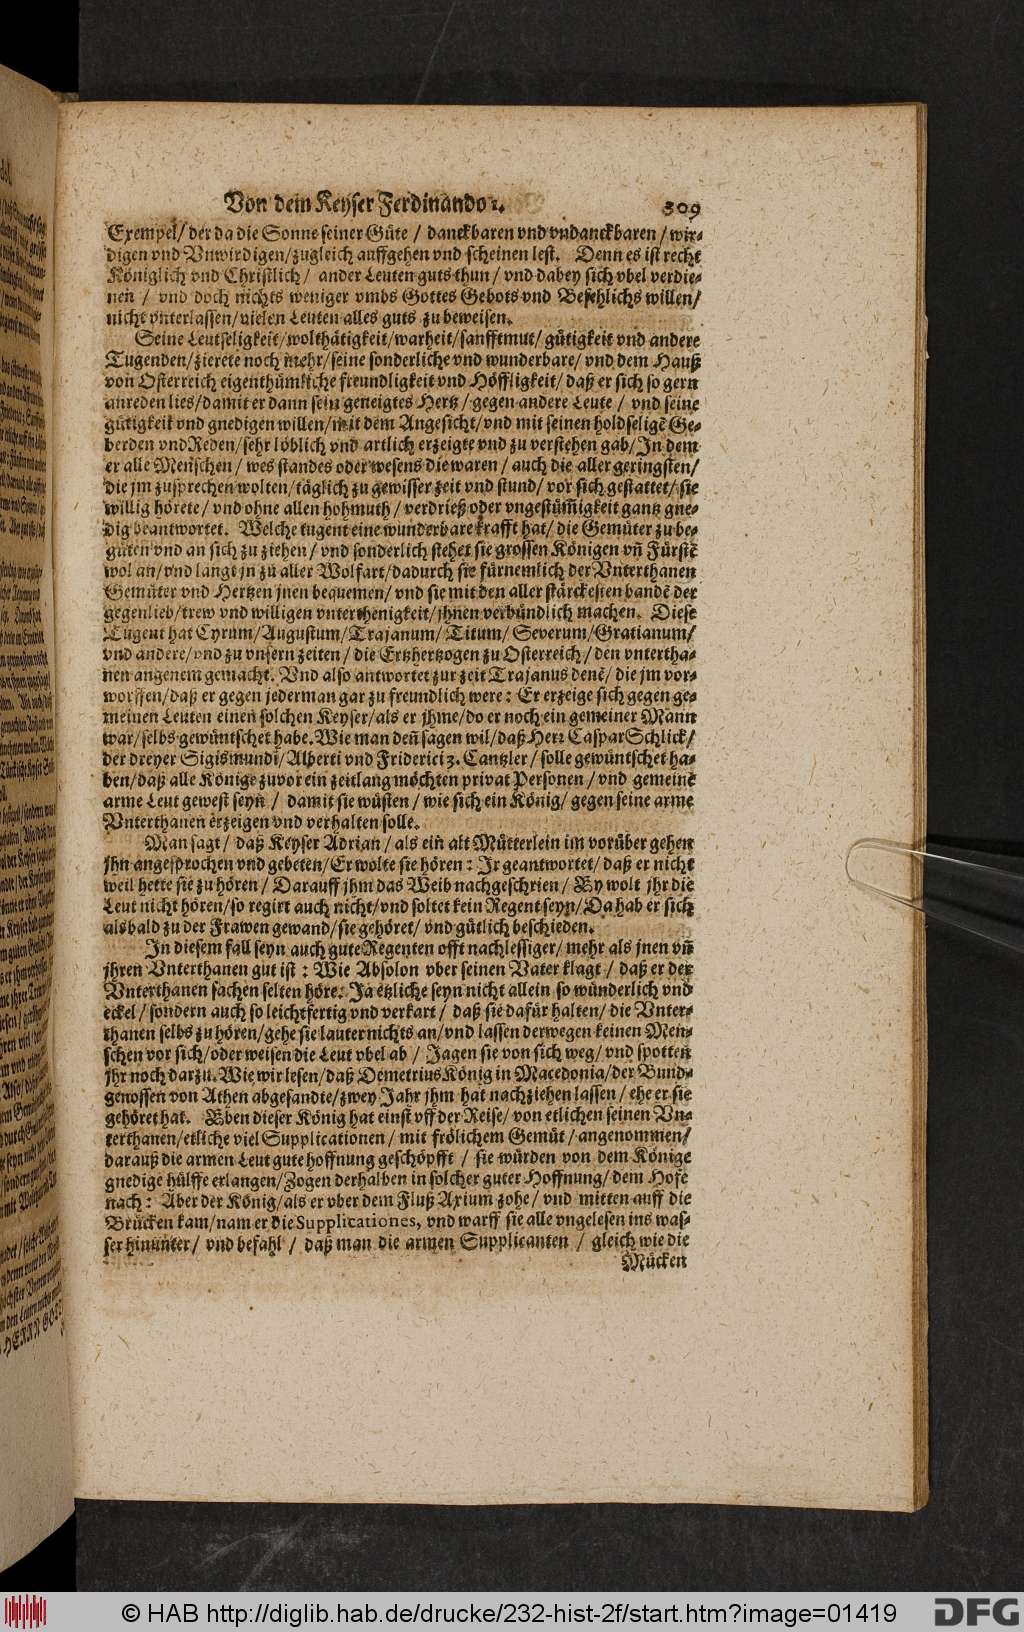 Von dem Keyser Ferdinando 1. 309
Exempel/ der da die Sonne seiner Güte / danckbaren vnd vndanckbaren / wir-
digen vnd Vnwirdigen/zugleich auffgehen vnd scheinen lest. Denn es ist recht
Königlich vnd Christlich / ander Leuten guts thun / vnd dabey sich vbel verdie-
nen / vnd doch nichts weniger vmbs Gottes Gebots vnd Befehlichs willen/
nicht vnterlassen/vielen Leuten alles guts zu beweisen.
Seine Leutseligkeit/wolthätigkeit/warheit/sanfftmut/ gütigkeit vnd andere
Tugenden/zierete noch mehr/seine sonderliche vnd wunderbare/ vnd dem Hauß
von Osterreich eigenthümliche freundligkeit vnd Höffligkeit/ daß er sich so gern
anreden lies/damit er dann sein geneigtes Hertz / gegen andere Leute / vnd seine
gütigkeit vnd gnedigen willen/mit dem Angesicht/vnd mit seinen holdseligē Ge-
berden vnd Reden/sehr löblich vnd artlich erzeigte vnd zu verstehen gab/In dem
er alle Menschen / wes standes oder wesens die waren / auch die aller geringsten/
die jm zusprechen wolten/täglich zu gewisser zeit vnd stund/ vor sich gestattet/ sie
willig hörete / vnd ohne allen hohmuth / verdrieß oder vngestüm̄igkeit gantz gne-
dig beantwortet. Welche tugent eine wunderbare krafft hat/ die Gemüter zu be-
güten vnd an sich zu ziehen/ vnd sonderlich stehet sie grossen Königen vn̄ Fürstē
wol an/vnd langt jn zu aller Wolfart/dadurch sie fürnemlich der Vnterthanen
Gemüter vnd Hertzen jnen bequemen/ vnd sie mit den aller stärckesten bandē der
gegenlieb/trew vnd willigen vnterthenigkeit/jhnen verbündlich machen. Diese
Tugent hat Cyrum/Augustum/Trajanum/Titum/ Severum/Gratianum/
vnd andere/vnd zu vnsern zeiten / die Ertzhertzogen zu Osterreich / den vntertha-
nen angenem gemacht. Vnd also antwortet zur zeit Trajanus denē/ die jm vor-
worffen/daß er gegen jederman gar zu freundlich were: Er erzeige sich gegen ge-
meinen Leuten einen solchen Keyser/als er jhme/do er noch ein gemeiner Mann
war/selbs gewüntschet habe. Wie man den̄ sagen wil/daß Herr Caspar Schlick/
der dreyer Sigismundi/Alberti vnd Friderici 3. Cantzler / solle gewüntschet ha-
ben/daß alle Könige zuvor ein zeitlang möchten privat Personen / vnd gemeinē
arme Leut gewest seyn / damit sie wüsten / wie sich ein König/ gegen seine arme
Vnterthanen erzeigen vnd verhalten solle.
Man sagt / daß Keyser Adrian / als ein alt Mütterlein im vorüber gehen
jhn angesprochen vnd gebeten/Er wolte sie hören: Ir geantwortet/ daß er nicht
weil hette sie zu hören / Darauff jhm das Weib nachgeschrien / Ey wolt jhr die
Leut nicht hören/so regirt auch nicht/vnd soltet kein Regent seyn/Da hab er sich
alsbald zu der Frawen gewand/sie gehöret/ vnd gütlich beschieden.
In diesem fall seyn auch gute Regenten offt nachlessiger/ mehr als jnen vn̄
jhren Vnterthanen gut ist: Wie Absolon vber seinen Vater klagt / daß er der
Vnterthanen sachen selten höre. Ja etzliche seyn nicht allein so wünderlich vnd
eckel / sondern auch so leichtfertig vnd verkart / daß sie dafür halten/ die Vnter-
thanen selbs zu hören/gehe sie lauter nichts an/vnd lassen derwegen keinen Men-
schen vor sich/oder weisen die Leut vbel ab / Jagen sie von sich weg/ vnd spotten
jhr noch darzu. Wie wir lesen/daß Demetrius König in Macedonia/der Bund-
genossen von Athen abgesandte/zwey Jahr jhm hat nachziehen lassen / ehe er sie
gehöret hat. Eben dieser König hat einst vff der Reise/ von etlichen seinen Vn-
terthanen/etliche viel Supplicationen / mit frölichem Gemüt / angenommen/
darauß die armen Leut gute hoffnung geschöpfft / sie würden von dem Könige
gnedige hülffe erlangen/Zogen derhalben in solcher guter Hoffnung/ dem Hofe
nach: Aber der König/als er vber dem Fluß Axium zohe/ vnd mitten auff die
Brücken kam/nam er die Supplicationes, vnd warff sie alle vngelesen ins was-
ser hinunter/ vnd befahl / daß man die armen Supplicanten / gleich wie die
Mücken
© HAB http://diglib.hab.de/drucke/232-hist-2f/start.htm?image=01419
DFG